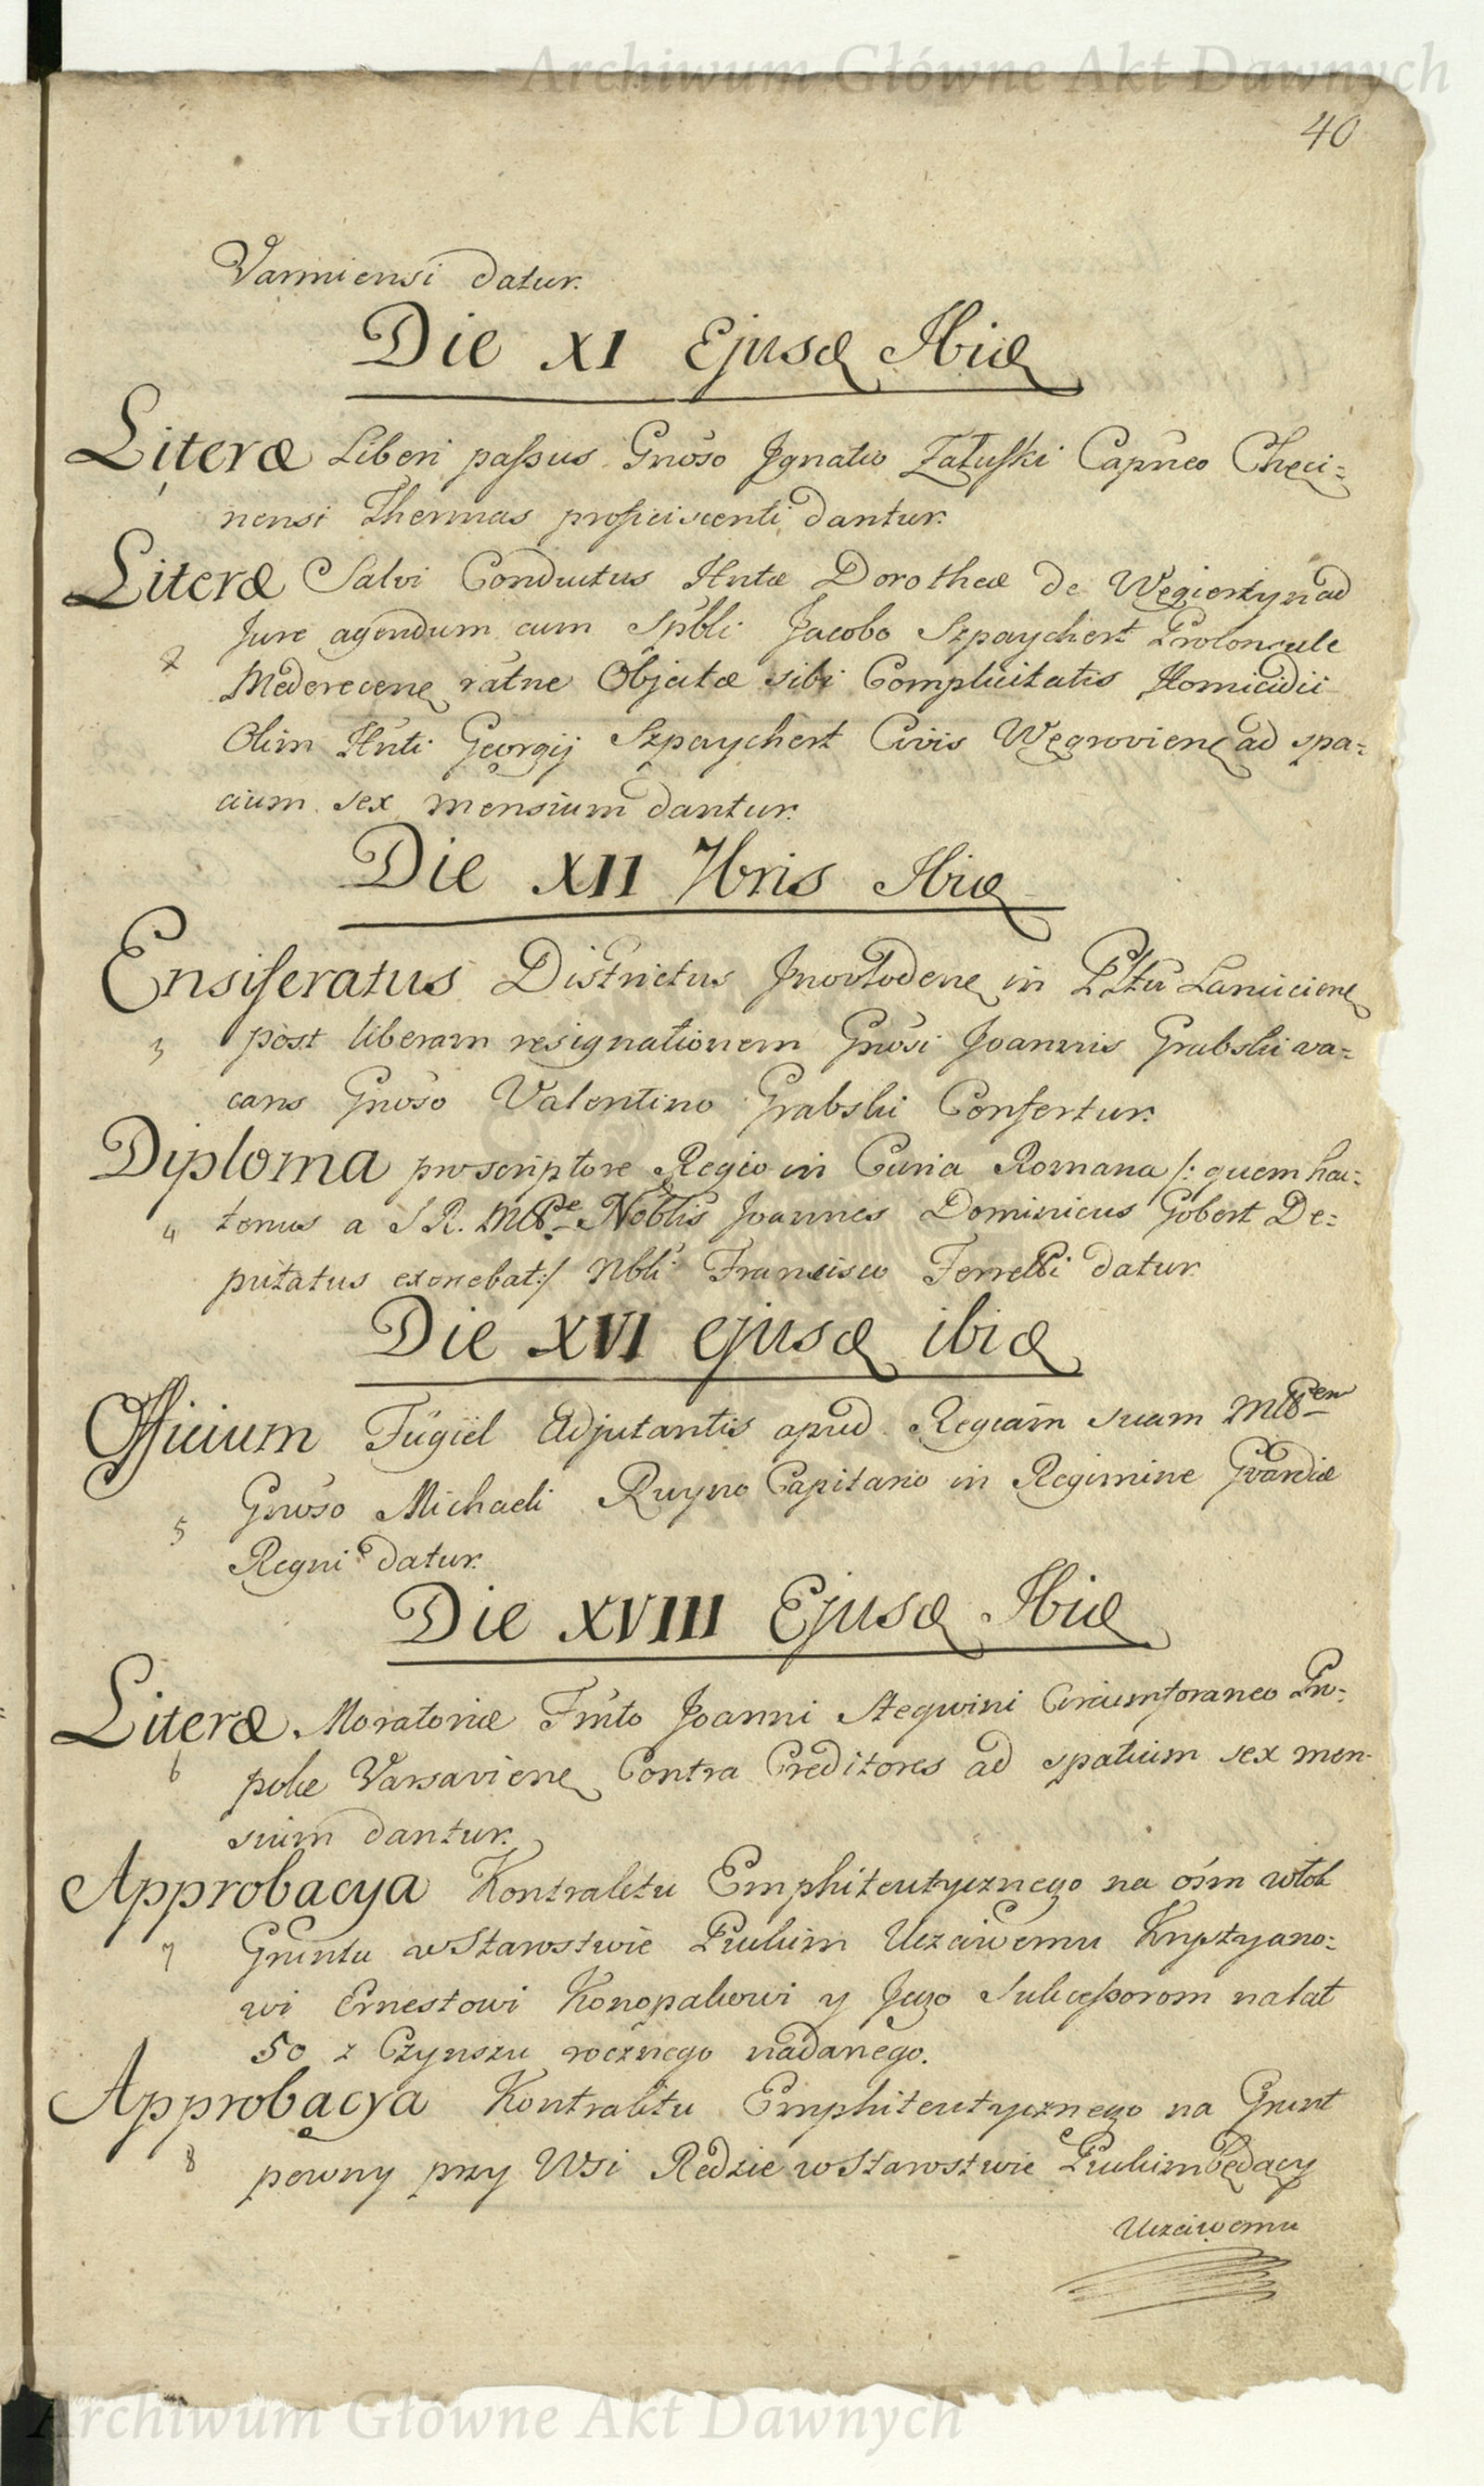 Archiwum Główne Akt Dawnych
40
Varmiensi datur.
Die XI Ejusd Ibid
Literæ Liberi passus Gnoso Jgnatio Załuski Capneo Chęci=
1
nensi Thermas proficiscenti dantur.
Literæ Salvi Conductus Hntæ Dorotheæ de Węgierskynad
2
Jure agendum cum Spbli Jacobo Szpaychert Proconsule
Mederecene ratne Objectæ sibi Complicitatis Homicidii
Olim Hnti Georgij Szpaychert Civis Węgroviene ad spa=
cium sex mensium dantur.
Die XII 7bris Ibid
Ensiferatus Districtus Jnowłodene in Pltu Lanciciene
3
post liberam resignationem Gnosi Joannis Grabski va=
cans Gnoso Valentino Grabski Confertur.
Diploma pro scriptore Regio in Curia Romana /: quem hac=
4
tenus a S R. Mtte Noblis Joannes Dominicus Gobert De=
putatus exercebat:/ Nbli Francisco Ferretti datur
Die XVI ejusd ibid
Officium Fligiel Adjutantis apud Regiam suam Mttem
5
Gnoso Michaeli Ruyno Capitano in Regimine Gvardiæ
Regni datur.
Die XVIII Ejusd Ibid
Literæ Moratoriæ Fmto Joanni Steqwini Circumforaneo Pro=
6
polæ Varsaviene Contra Creditores ad spatium sex men-
sium dantur.
Approbacya Kontraktu Emphiteutycznego na ośm włok
7
Gruntu w Starostwie Puckim Uczciwemu Krystyano=
wi Ernestowi Konopakowi y Jego Sukcessorom na lat
50 z Czynszu rocznego nadanego.
Approbacya Kontraktu Emphiteutycznego na Grunt
8
pewny przy Wsi Redzie w Starostwie Puckim będący
Uczciwemu
Archiwum Główne Akt Dawnych